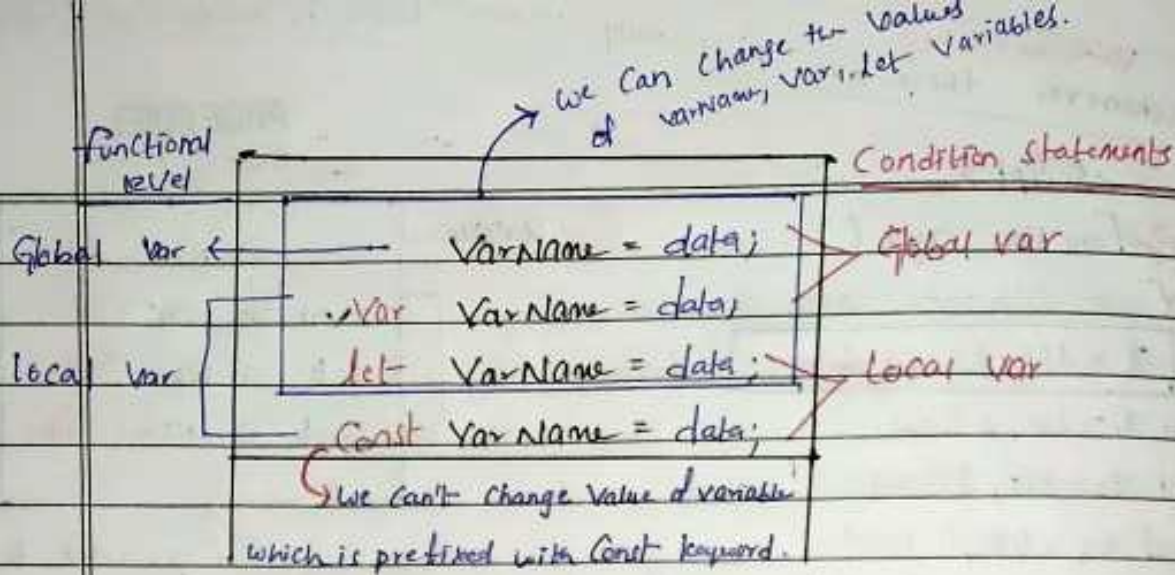 we Can change the values
of varName, var, let variables.
functional
level
Condition statements
Global var
VarName = data;
Global var
Var VarName = data;
local var
let VarName = data;
Local var
Const VarName = data;
we can't change value of variable
which is prefixed with Const keyword.